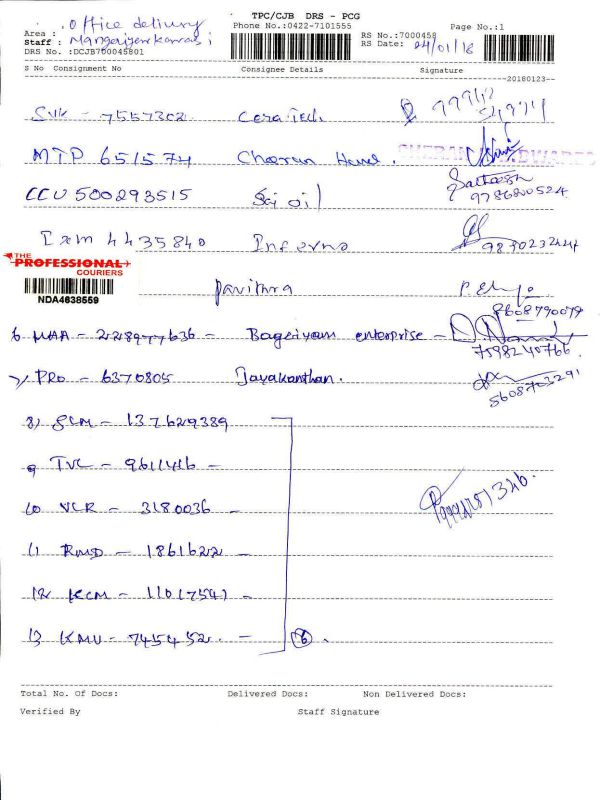 TPC/CJB DRS - PCG
Area : Office delivery
Phone No.:0422-7101555
Page No.:1
Staff :
RS No.:7000458
RS Date: 24/01/18
DRS No. :DCJB700045801
S No Consignment No Consignee Details Signature
20180123
SVK - 7557302 Cera Tech
MTP 651574 Cheeran Hard.
CCU 500293515 Sai oil
Sathesh
9786200524
Ixm 4435840 Inferno
THE PROFESSIONAL COURIERS
NDA4638559
Pavithra
8608790079
6 MAA - 228977636 - Bageiyam enterprise -
7598240766
7) PRO - 6370805 Jayakanthan.
8608703291
8) SLM - 137629389
9 TVC - 9611416 -
10 VCR - 3180036 -
11 RMD - 1861622 -
12 KCM - 11017541 -
13 KMU - 745452 - 6.
Total No. Of Docs: Delivered Docs: Non Delivered Docs:
Verified By Staff Signature